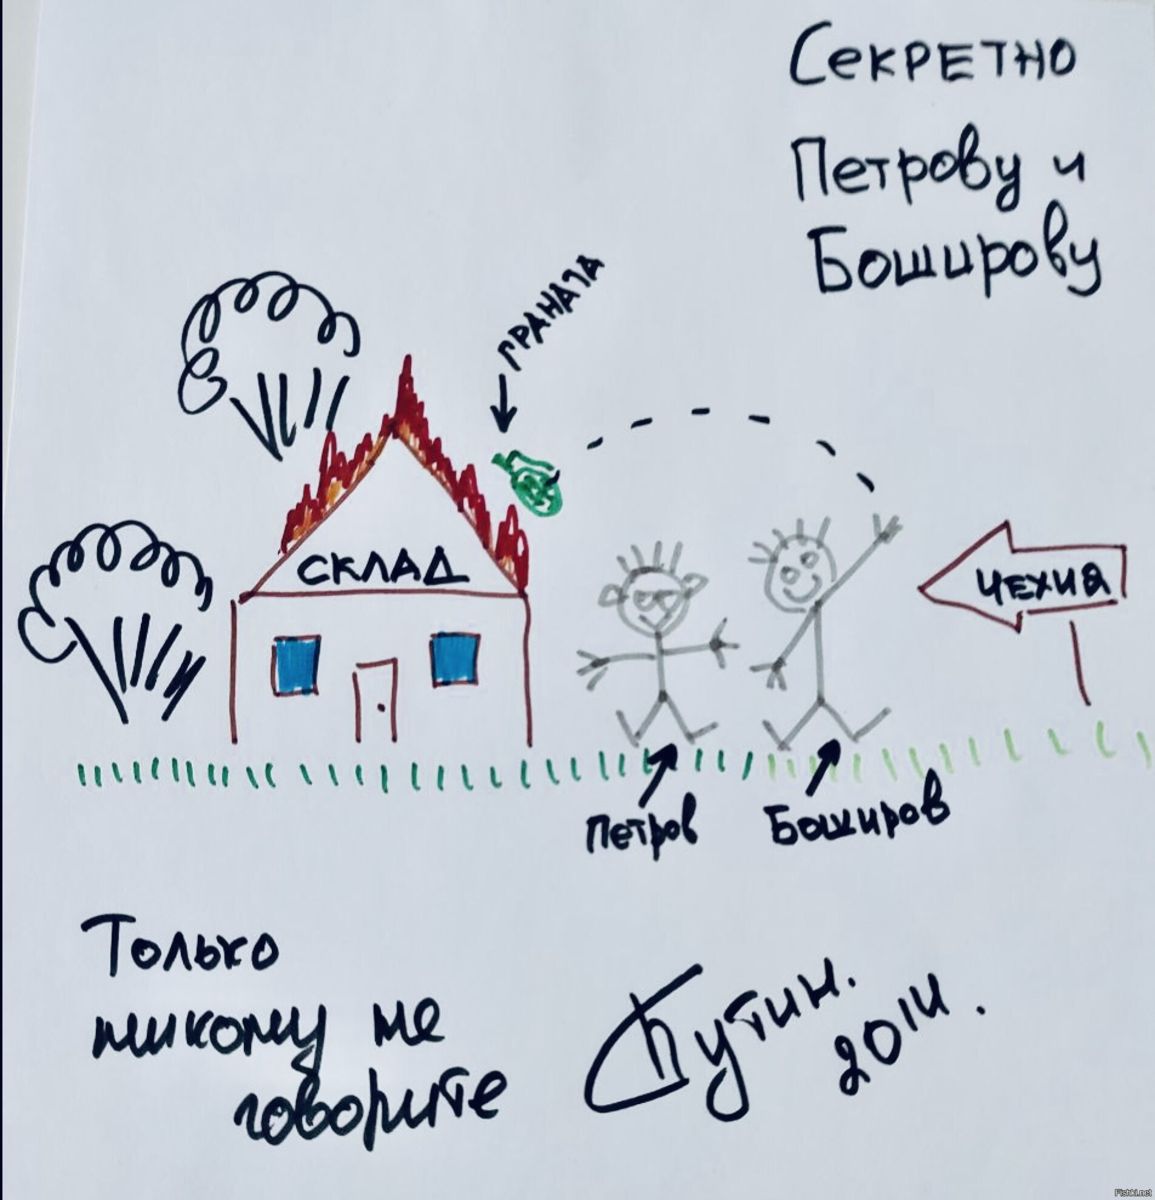 Секретно
Петрову и
Боширову
граната
склад
Чехия
Петров
Боширов
Только
никому не
говорите
Путин.
2014.
Fishki.net